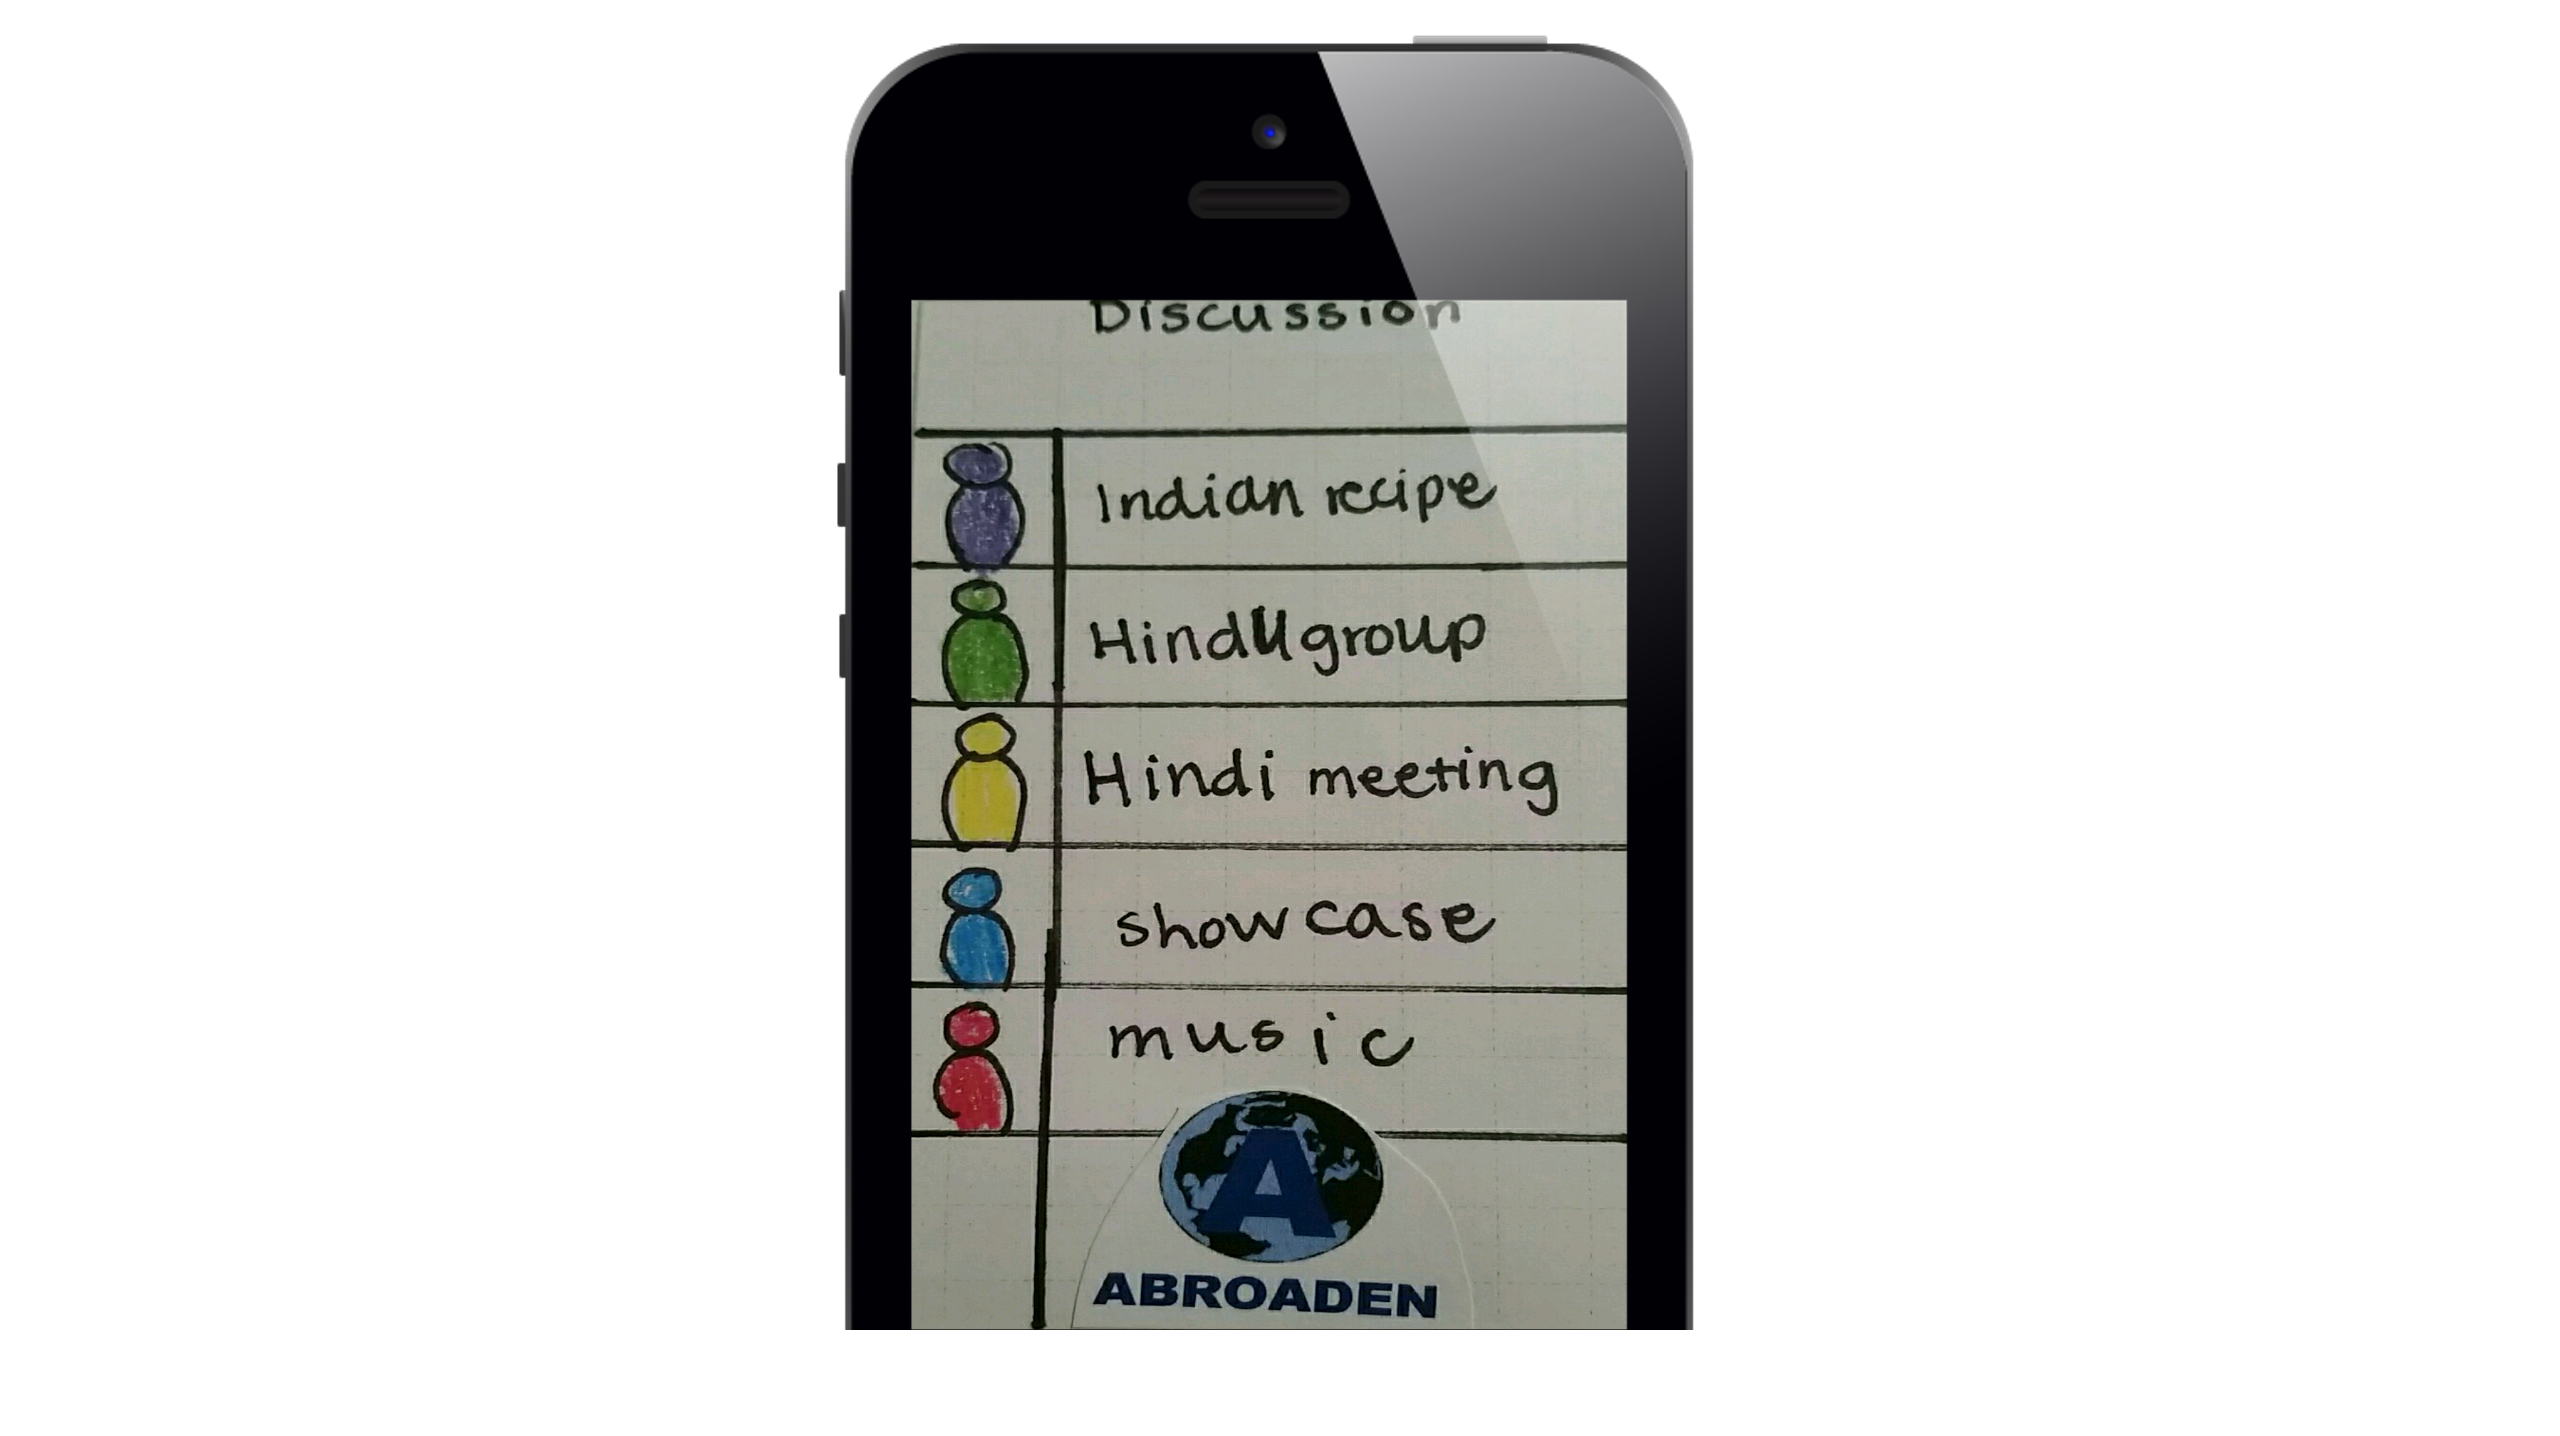 Discussion
Indian recipe
Hindu group
Hindi meeting
showcase
music
A
ABROADEN